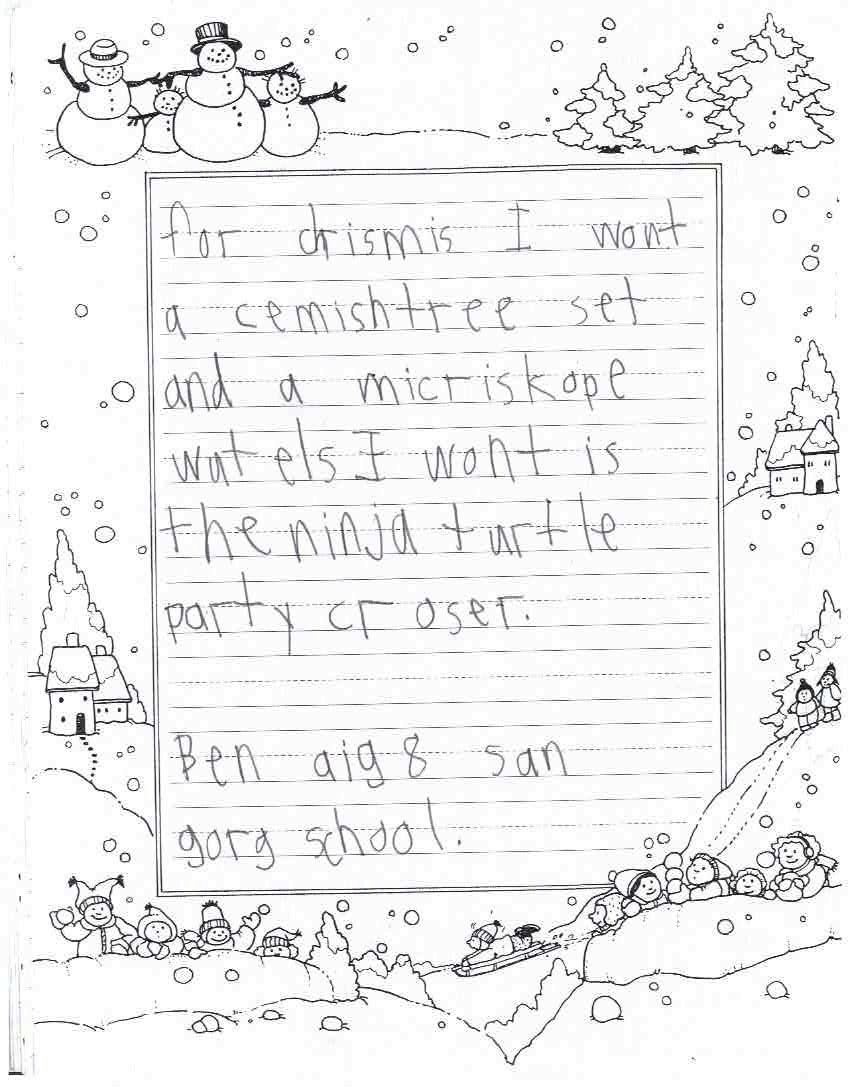 for chrismis I wont
a cemishtree set
and a micriskope
wat els I wont is
the ninja turtle
party croser.
Ben aig 8 san
gorg school.